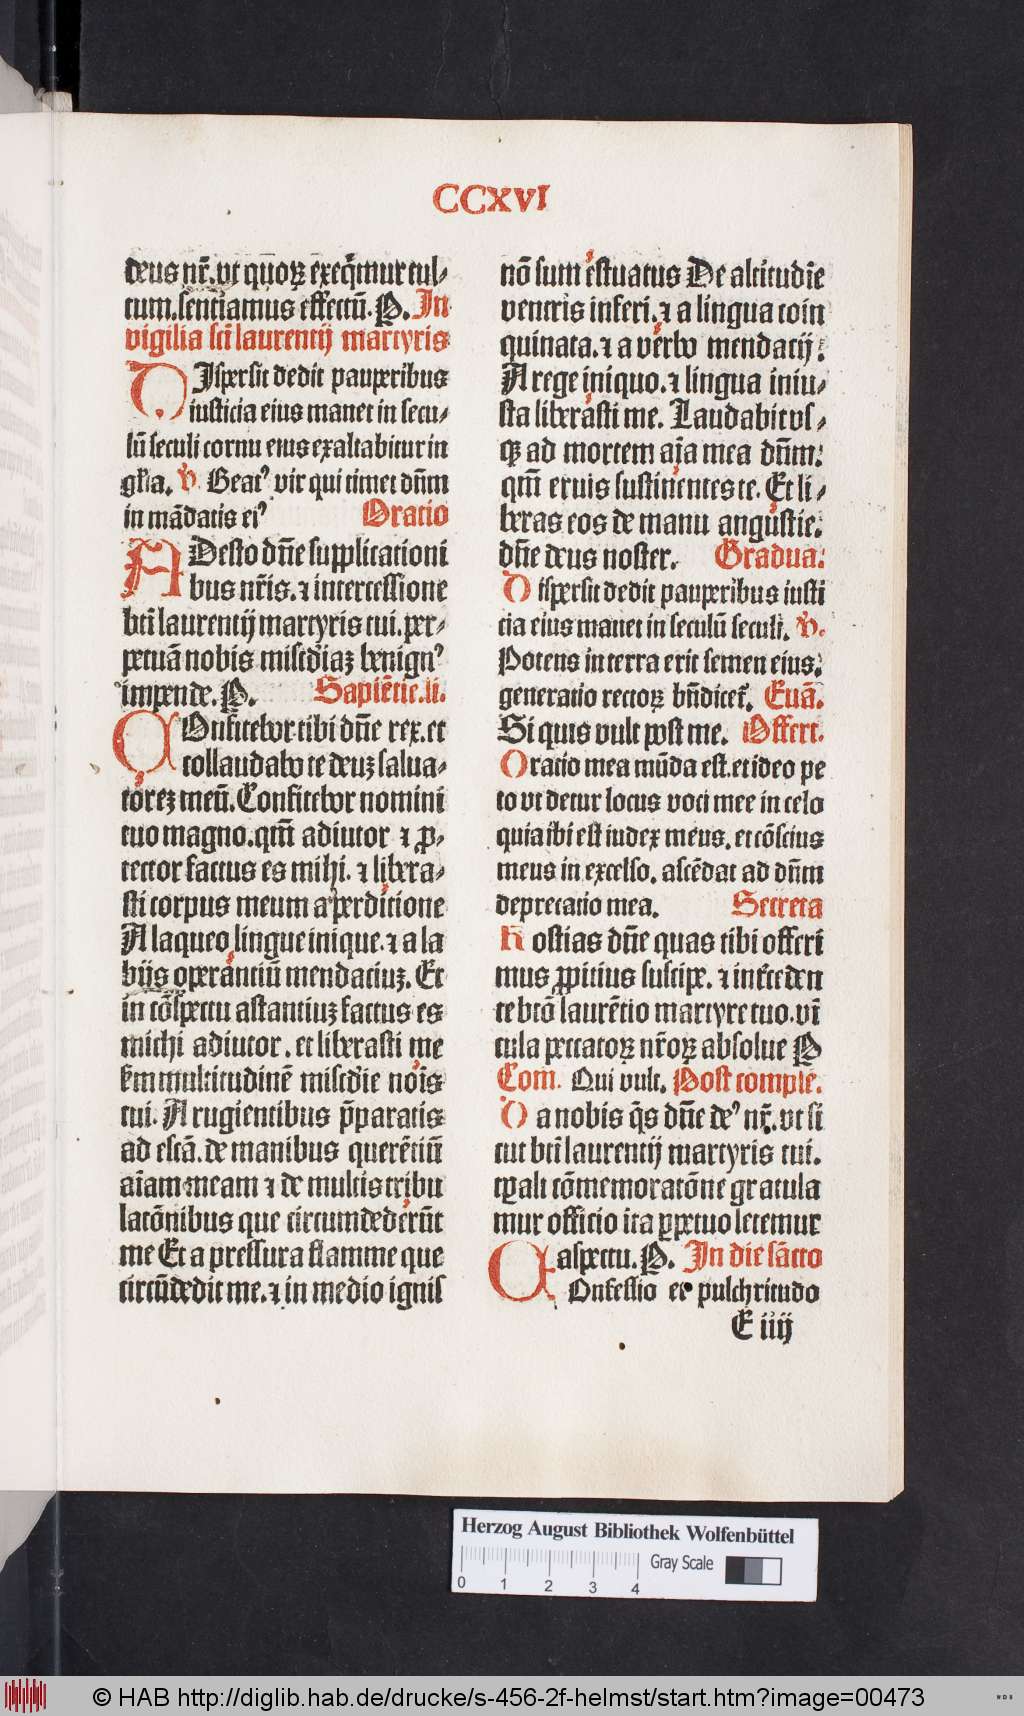 CCXVI
deus nr̄. vt quoꝝ exeq̄mur cul⸗
tum. sentiamus effectū. P. In
vigilia scī laurentij martyris
DIspersit dedit pauperibus
iusticia eius manet in secu⸗
lū seculi cornu eius exaltabitur in
gl̄ia. V̄. Beatꝰ vir qui timet dn̄m
in mādatis eiꝰ Oratio
ADesto dn̄e supplicationi
bus nr̄is. ⁊ intercessione
bti̅ laurentij martyris tui. per⸗
petuā nobis misc̄diaꝫ benignꝰ
impende. P. Sapiētie. li.
COnfitebor tibi dn̄e rex. et
collaudabo te deuꝫ salua⸗
toreꝫ meū. Confitebor nomini
tuo magno. qm̄ adiutor ⁊ ꝓ⸗
tector factus es mihi. ⁊ libera⸗
sti corpus meum a perditione
A laqueo lingue inique. ⁊ a la
bijs operantiū mendaciuꝫ. Et
in cōspectu astantiuꝫ factus es
michi adiutor. et liberasti me
s̄m multitudinē misc̄die nois̄
tui. A rugientibus p̄paratis
ad escā. de manibus querētiū
aīam meam ⁊ de multis tribu
latōnibus que circumdederūt
me Et a pressura flamme que
circūdedit me. ⁊ in medio ignis
nō sum estuatus De altitudīe
ventris inferi. ⁊ a lingua coin
quinata. ⁊ a verbo mendacij:
A rege iniquo. ⁊ lingua iniu⸗
sta liberasti me. Laudabit vs⸗
qꝫ ad mortem aīa mea dn̄m:
qm̄ eruis sustinentes te. Et li⸗
beras eos de manu angustie:
dn̄e deus noster. Gradua:
Dispersit dedit pauperibus iusti
cia eius manet in seculū seculi. V̄.
Potens in terra erit semen eius:
generatio rectoꝝ bn̄dicet̄. Euā.
Si quis vult post me. Offert.
Oratio mea mūda est. et ideo pe
to vt detur locus voci mee in celo
quia ibi est iudex meus. et cōscius
meus in excelso. ascēdat ad dn̄m
deprecatio mea. Secreta
Hostias dn̄e quas tibi offeri
mus ꝓpitius suscipe. ⁊ int̄ceden
te btō laurētio martyre tuo. vī
cula peccatoꝝ nr̄oꝝ absolue P
Com. Qui vult. Post comple.
Da nobis q̄s dn̄e deꝰ nr̄. vt si
cut bti̅ laurentij martyris tui.
tꝑali cōmemoratōne gratula
mur officio ita ꝑpetuo letemur
aspectu. P. In die sācto
COnfessio et pulchritudo
E iiij
Herzog August Bibliothek Wolfenbüttel
Gray Scale
0 1 2 3 4
© HAB http://diglib.hab.de/drucke/s-456-2f-helmst/start.htm?image=00473